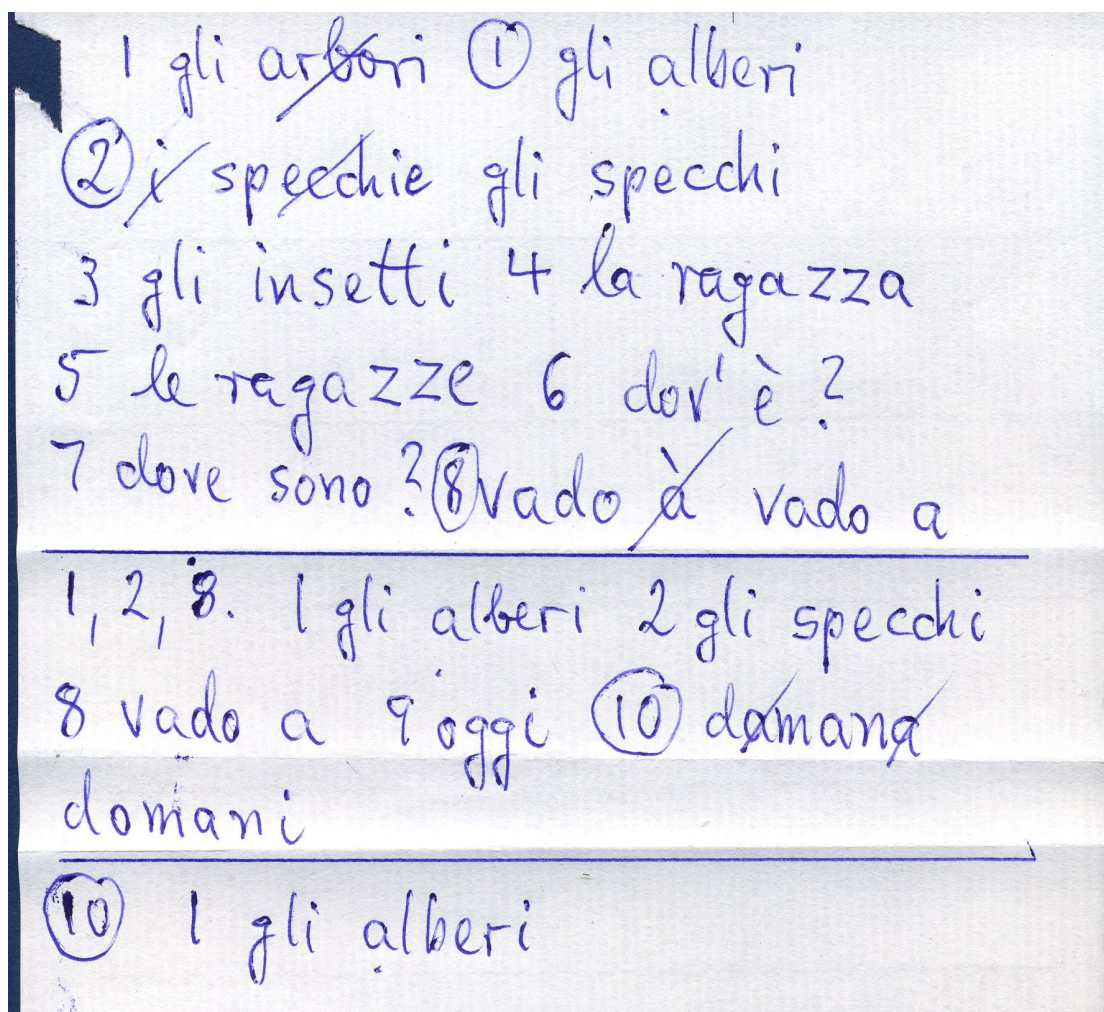 1 gli arbori ① gli alberi
② i specchie gli specchi
3 gli insetti 4 la ragazza
5 le ragazze 6 dov'è ?
7 dove sono ? ⑧ vado à vado a
1, 2, 8. 1 gli alberi 2 gli specchi
8 vado a 9 oggi ⑩ damana
domani
⑩ 1 gli alberi